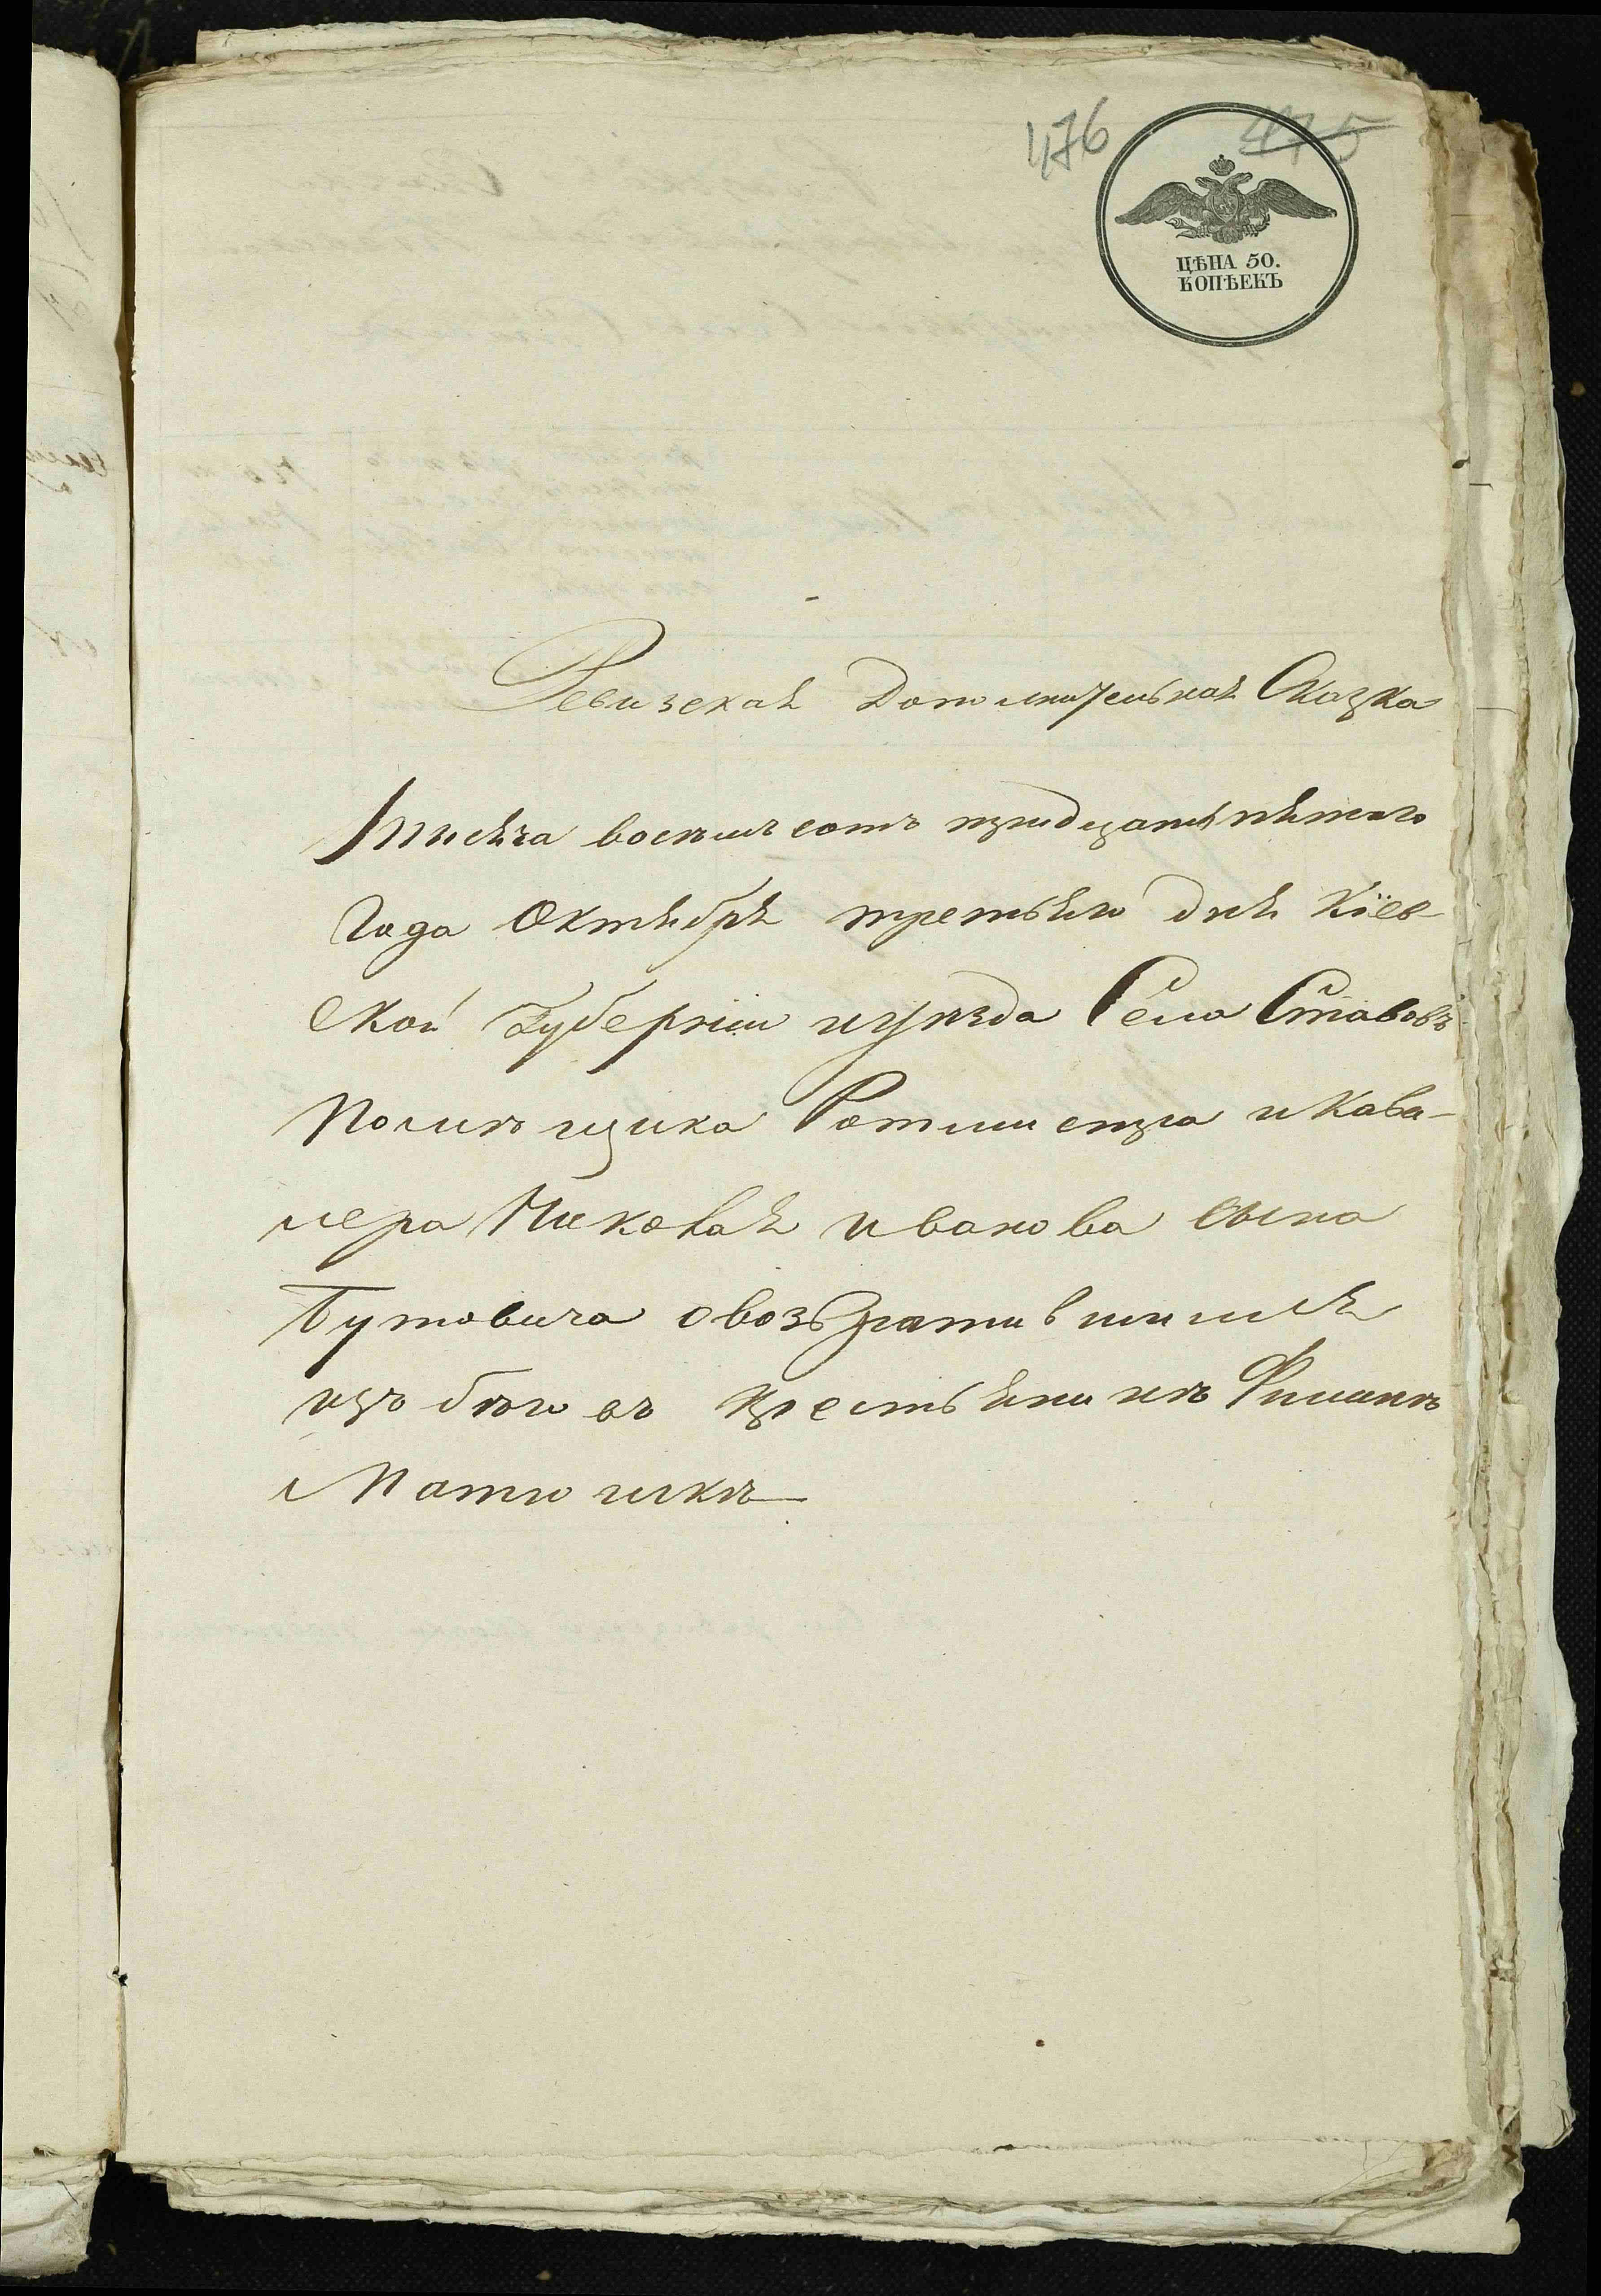 476 475
ЦѢНА 50.
КОПѢЕКЪ
Ревизская Дополнительная Сказка
Тысяча восемъ сотъ тридцать пятого
Года Октября третьяго дня Кіев-
ской Губерніи и уѣзда Села Ставовъ
Помѣщика Ротмистра и Кава-
лера Николая Иванова сына
Бутовича о возъвратившимся
изъ бѣговъ крестьянинѣ Филипѣ
Матюшкѣ